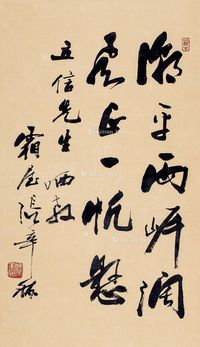 潮平两岸阔
风正一帆悬
立信先生哂教
霜屋張辛稼